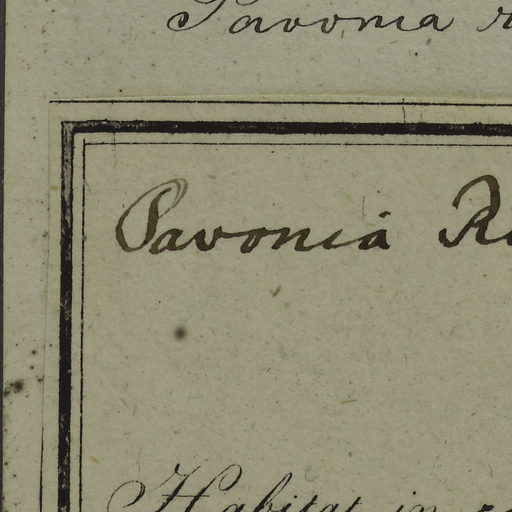 Pavonia
Pavonia
Habitat in